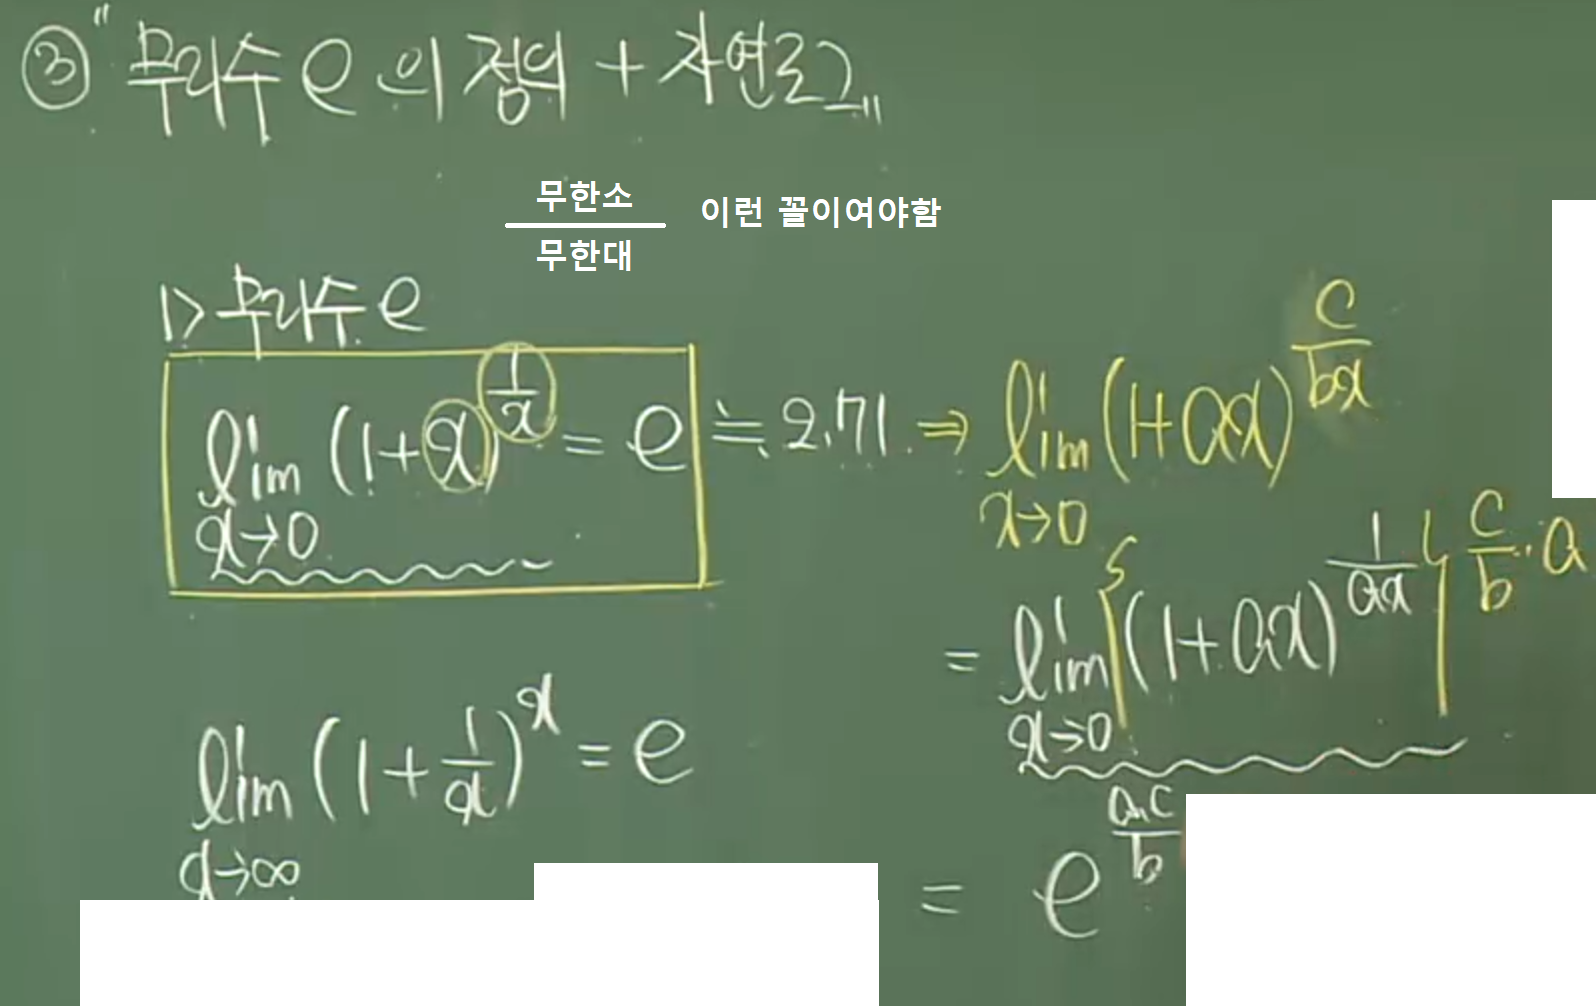 ③ "무리수 e의 정의 + 자연로그"
무한소
무한대
이런 꼴이여야함
1> 무리수 e
lim (1+x)^(1/x) = e ≒ 2.71 ⇒ lim (1+ax)^(c/bx)
x→0
x→0
= lim {(1+ax)^(1/ax)}^(c/b · a)
x→0
lim (1+1/x)^x = e
x→∞
= e^(a.c/b)